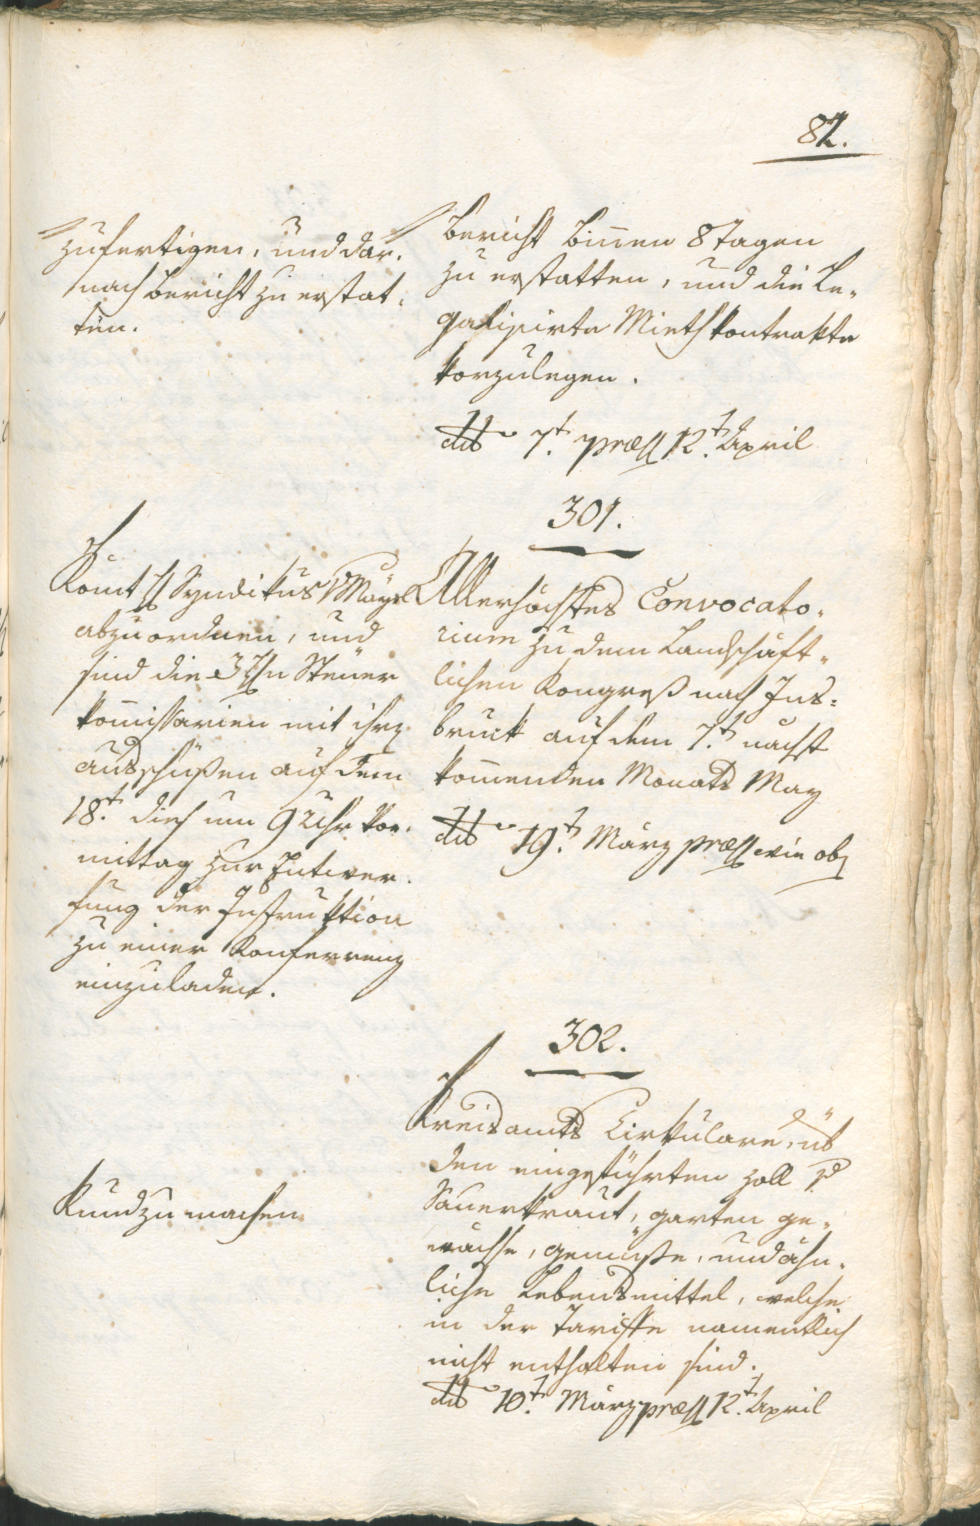 82.
zufertigen, und dar-
nach Bericht zu erstat-
ten.
Bericht binnen 8 Tagen
zu erstatten, und die Le-
galisirte Miethkontrakte
vorzulegen.
dtto 7t. præs 12t. April
301.
Komt H Syndikus v Mayrl
abzuordnen, und
sind die 3 Hn Steuer
kommissarien mit ihrz
ausschüßen auf dem
18t. dies um 9 Uhr vor-
mittag zur Entwer-
fung der Instruktion
zu einer Konferrenz
einzuladen.
Allerhöchstes Convocato-
rium zu dem Landschäft-
lichen Kongreß nach Ins-
bruck auf dem 7t. nächst
kommenden Monats May
dtto 19t. März præs wie ob
302.
Kund zu machen
Kreisamts Cirkulare, üb
den eingeführten Zoll
Sauerkraut, garten ge-
wächse, gemüße, und ähn-
liche Lebensmittel, welche
in der Tariffe namentlich
nicht enthalten sind.
dtto 10t. März præs 12t. April